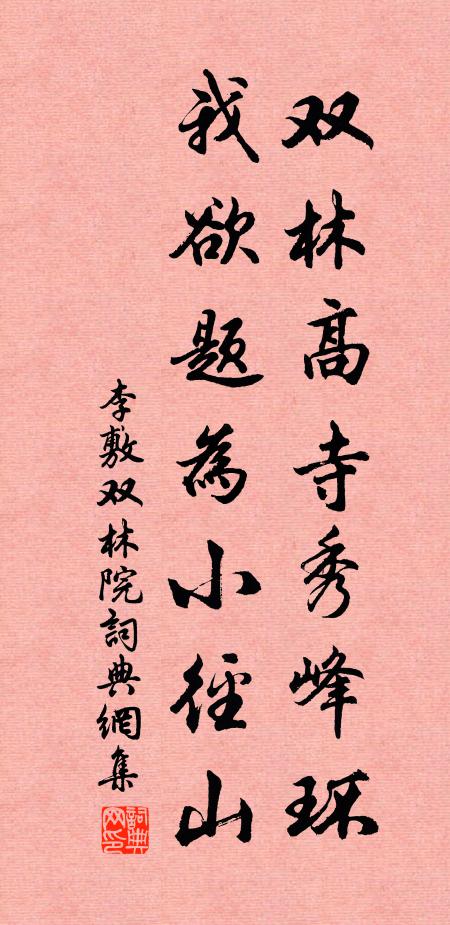 双林高寺秀峰环
我欲题為小径山
李敷双林院詞典網集
詞典網印